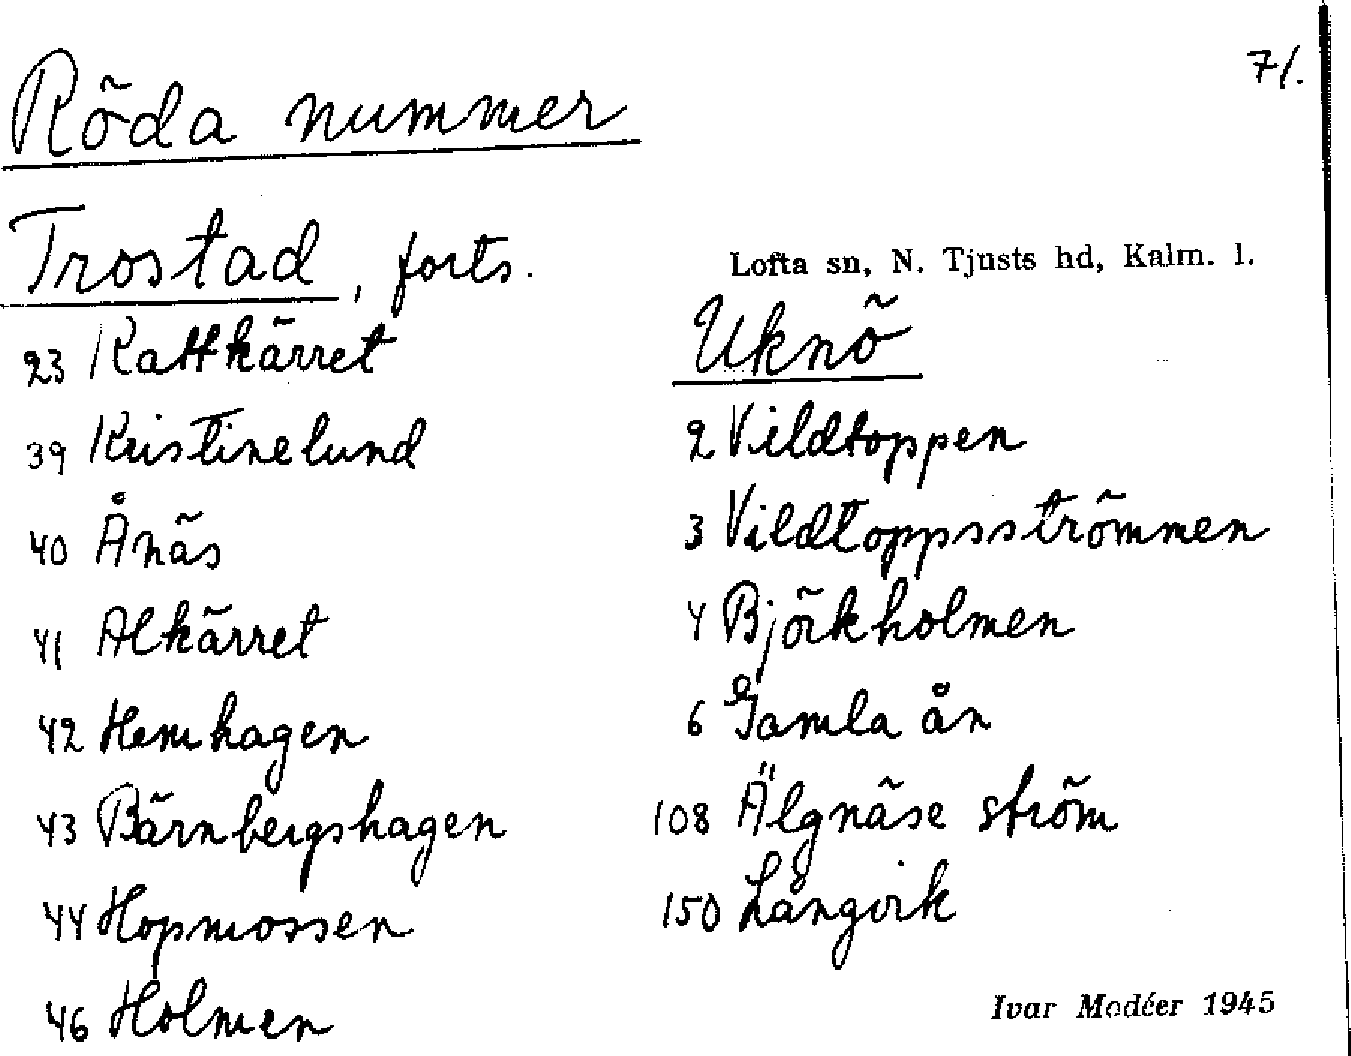 71.
Röda nummer
Trostad, forts.
23 Kattkärret
39 Kristinelund
40 Ånäs
41 Alkärret
42 Hemhagen
43 Bärnbergshagen
44 Hopmossen
46 Holmen
Lofta sn, N. Tjusts hd, Kalm. l.
Uknö
2 Vildtoppen
3 Vildtoppsströmmen
4 Björkholmen
6 Gamla ån
108 Älgnäse ström
150 Långvik
Ivar Modéer 1945